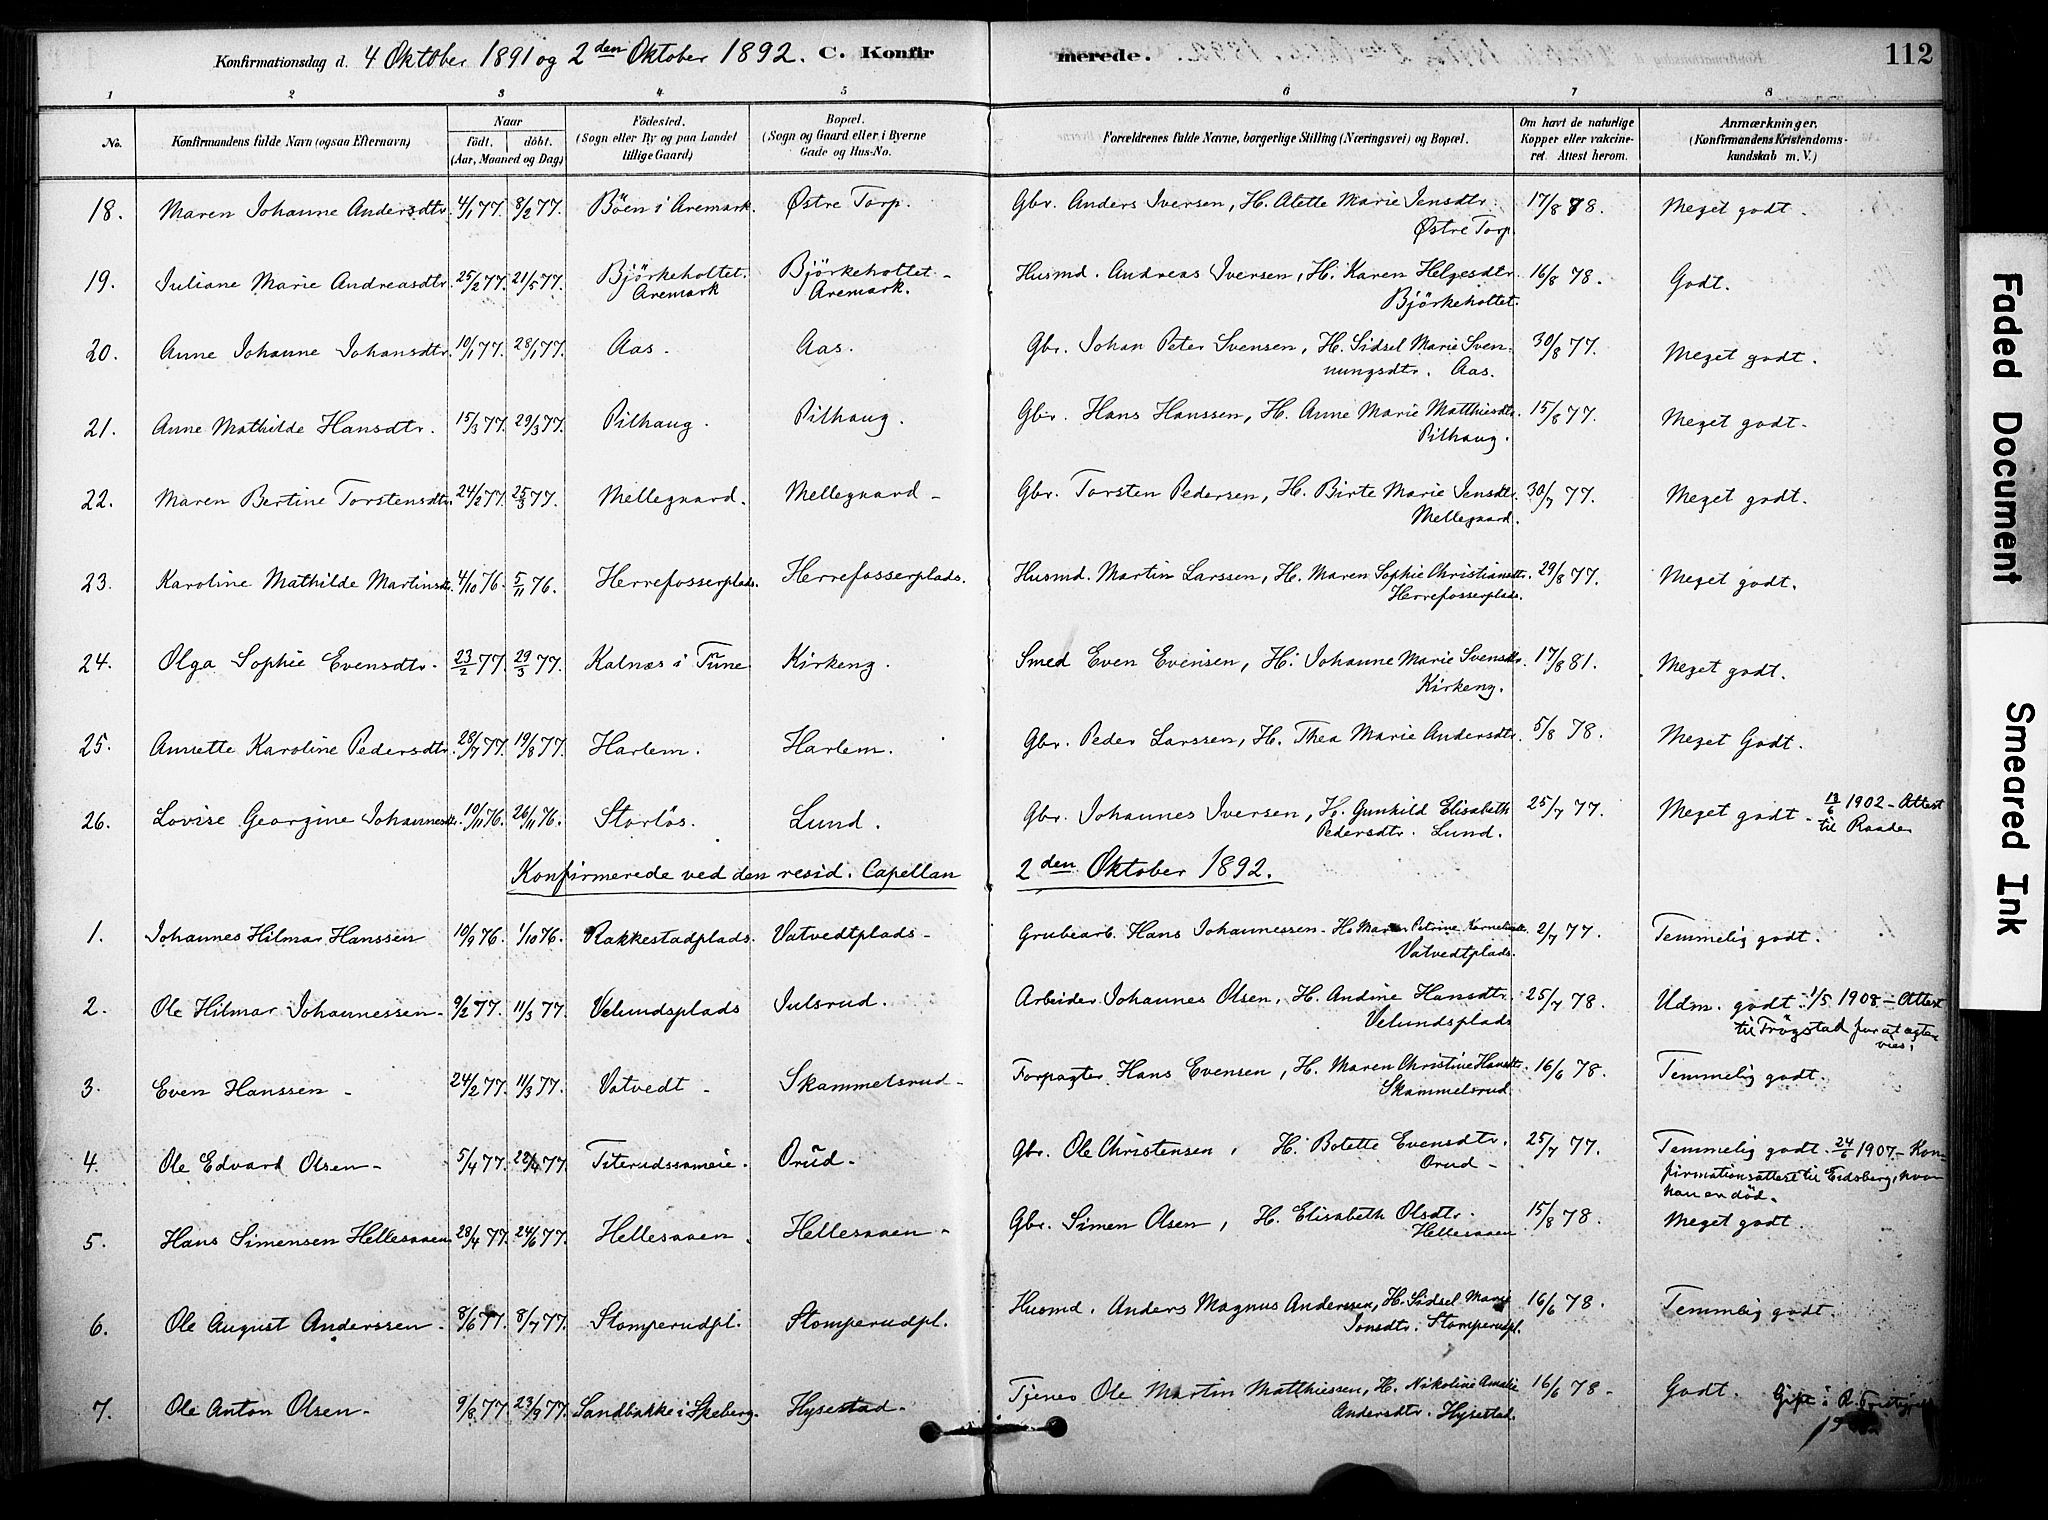 Konfirmationsdag d. 4 Oktober 1891 og 2den Oktober 1892. C. Konfirmerede. 112
1 2 3 4 5 6 7 8
No. Konfirmandens fulde Navn (ogsaa Efternavn) Naar födt. döbt. (Aar, Maaned og Dag) Födested. (Sogn eller By og paa Landet tillige Gaard) Bopæl. (Sogn og Gaard eller i Byerne Gade og Hus-No. Forældrenes fulde Navne, borgerlige Stilling (Næringsvei) og Bopæl. Om havt de naturlige Kopper eller vakcineret. Attest herom. Anmærkninger. (Konfirmandens Kristendomskundskab m. V.)
18. Maren Johanne Andersdtr. 4/1 77. 8/2 77. Böen i Aremark. Østre Torp. Gbr. Anders Iversen, H. Alette Marie Jensdtr. 17/8 78. Meget godt.
Østre Torp.
19. Juliane Marie Andreasdtr. 25/2 77. 21/5 77. Björkeholtet. Björkeholtet - Husmd. Andreas Iversen, H. Karen Helgesdtr. 16/8 78. Godt.
Aremark Aremark. Björkeholtet.
20. Anne Johanne Johansdtr. 10/1 77. 28/1 77. Aas. Aas. Gbr. Johan Peter Svensen, H. Sidsel Marie Sven- 30/8 77. Meget godt.
nungsdtr. Aas.
21. Anne Mathilde Hansdtr. 15/3 77. 29/3 77. Pilhaug. Pilhaug. Gbr. Hans Hanssen, H. Anne Marie Matthiesdtr. 15/8 77. Meget godt.
Pilhaug.
22. Maren Bertine Torstensdtr. 24/2 77. 25/3 77. Mellegaard. Mellegaard - Gbr. Torsten Pedersen, H. Birte Marie Jensdtr. 30/7 77. Meget godt.
Mellegaard.
23. Karoline Mathilde Martinsdtr. 4/10 76. 5/11 76. Herrefosserplads. Herrefosserplads. Husmd. Martin Larssen, H. Maren Sophie Christiansdtr. 29/8 77. Meget godt.
Herrefosserplads.
24. Olga Sophie Evensdtr. 23/2 77. 29/3 77. Kalnæs i Tune Kirkeng. Smed Even Evensen, H. Johanne Marie Svensdtr. 17/8 81. Meget godt.
Kirkeng.
25. Annette Karoline Pedersdtr. 28/7 77. 19/8 77. Harlem. Harlem. Gbr. Peder Larssen, H. Thea Marie Andersdtr. 5/8 78. Meget Godt.
26. Lovise Georgine Johannesdtr. 10/11 76. 26/11 76. Storlös. Lund. Gbr. Johannes Iversen, H. Gunhild Elisabeth 25/7 77. Meget godt - 13/6 1902 - Attest
Pedersdtr. Lund. til Raade
Konfirmerede ved den resid. Capellan 2den Oktober 1892.
1. Johannes Hilmar Hanssen 10/9 76. 1/10 76. Rakkestadplads. Vatvedtplads - Grubearb. Hans Johannessen - H. Maren Petrine Korneliusdtr. 2/7 77. Temmelig godt.
Vatvedtplads.
2. Ole Hilmar Johannessen - 9/2 77. 11/3 77. Velundsplads Julsrud. Arbeider Johannes Olsen, H. Andine Hansdtr. 25/7 78. Udm. godt - 1/5 1908 - Attest
Velundsplads til Trögstad for at ægte-
vies.
3. Even Hanssen - 24/2 77. 11/3 77. Vatvedt - Skammelsrud - Forpagter Hans Evensen, H. Maren Christine Hansdtr. 16/6 78. Temmelig godt.
Skammelsrud.
4. Ole Edvard Olsen - 5/4 77. 22/4 77. Titerudssameie. Orud. Gbr. Ole Christensen, H. Botette Evensdtr. 25/7 77. Temmelig godt. 24/6 1907 - Kon-
Orud - firmationsattest til Eidsberg, hvor
han er död.
5. Hans Simensen Hellesaaen 28/4 77. 24/6 77. Hellesaaen. Hellesaaen - Gbr. Simen Olsen, H. Elisabeth Olsdtr. 15/8 78. Meget godt.
Hellesaaen
6. Ole August Anderssen - 8/6 77. 8/7 77. Stomperudpl. Stomperudpl. Husmd. Anders Magnus Anderssen, H. Sidsel Marie 16/6 78. Temmelig godt.
Jonsdtr. Stomperudpl.
7. Ole Anton Olsen - 9/8 77. 23/9 77. Sandbakke i Skeberg. Hysestad. Tjener Ole Martin Matthiessen, H. Nikoline Amalie 16/6 78 - Godt. Gift i
Andersdtr. Hysestad.
Faded Document
Smeared Ink